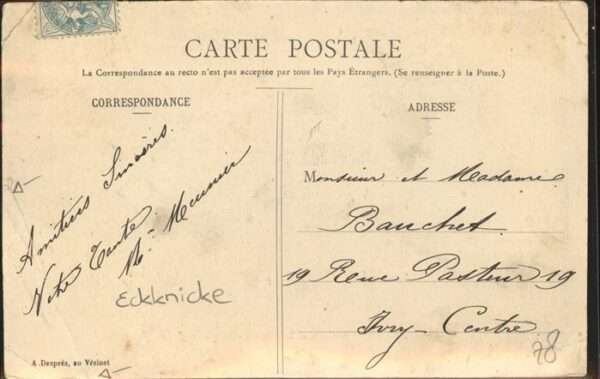 CARTE POSTALE
La Correspondance au recto n'est pas acceptée par tous les Pays Etrangers. (Se renseigner à la Poste.)
CORRESPONDANCE
Amitiés Sincères.
Votre Tante
M. Meunier
Eckknicke
A. Desprès, au Vésinet
ADRESSE
Monsieur et Madame
Bauchet
19 Rue Pasteur 19
Ivry-Centre
78